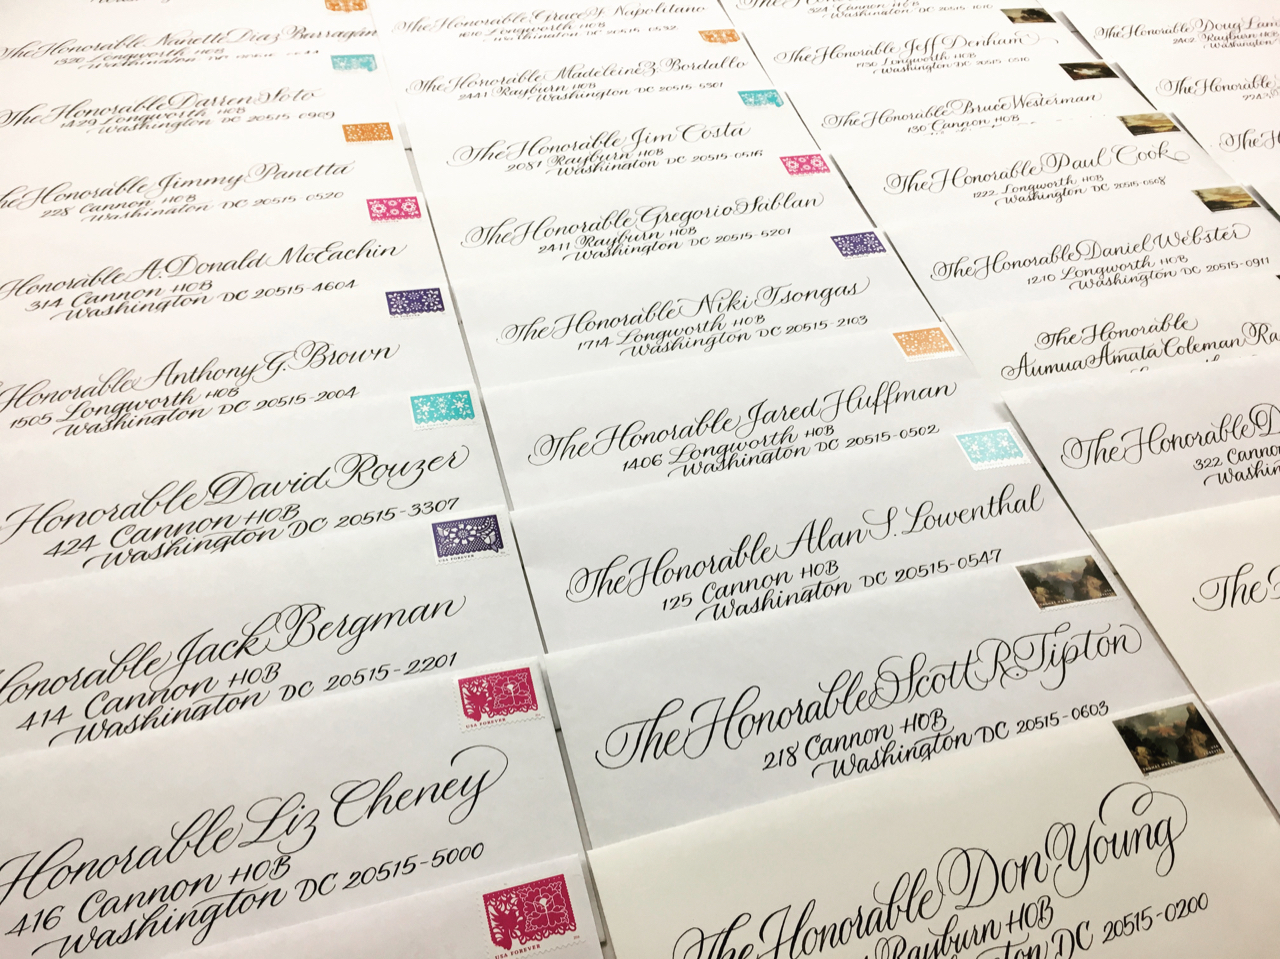 The Honorable Nanette Diaz Barragán
1320 Longworth HOB
Washington DC
The Honorable Darren Soto
1429 Longworth HOB
Washington DC 20515-0909
The Honorable Jimmy Panetta
228 Cannon HOB
Washington DC 20515-0520
Honorable A. Donald McEachin
314 Cannon HOB
Washington DC 20515-4604
Honorable Anthony G. Brown
1505 Longworth HOB
Washington DC 20515-2004
Honorable David Rouzer
424 Cannon HOB
Washington DC 20515-3307
USA FOREVER
Honorable Jack Bergman
414 Cannon HOB
Washington DC 20515-2201
USA FOREVER
Honorable Liz Cheney
416 Cannon HOB
Washington DC 20515-5000
USA FOREVER
The Honorable Grace F. Napolitano
1610 Longworth HOB
Washington DC 20515-0532
The Honorable Madeleine Z. Bordallo
2441 Rayburn HOB
Washington DC 20515-5301
The Honorable Jim Costa
2081 Rayburn HOB
Washington DC 20515-0516
The Honorable Gregorio Sablan
2411 Rayburn HOB
Washington DC 20515-5201
The Honorable Niki Tsongas
1714 Longworth HOB
Washington DC 20515-2103
The Honorable Jared Huffman
1406 Longworth HOB
Washington DC 20515-0502
The Honorable Alan S. Lowenthal
125 Cannon HOB
Washington DC 20515-0547
The Honorable Scott R. Tipton
218 Cannon HOB
Washington DC 20515-0603
The Honorable Don Young
Rayburn HOB
Washington DC 20515-0200
324 Cannon HOB
Washington DC 20515-1010
The Honorable Jeff Denham
1730 Longworth HOB
Washington DC 20515-0510
The Honorable Bruce Westerman
130 Cannon HOB
The Honorable Paul Cook
1222 Longworth HOB
Washington DC 20515-0508
The Honorable Daniel Webster
1210 Longworth HOB
Washington DC 20515-0911
The Honorable
Aumua Amata Coleman Ra
The Honorable D
322 Cannon
Washin
The
The Honorable Doug Lam
2402 Rayburn HOB
Washington DC
The Honorable
The Ho